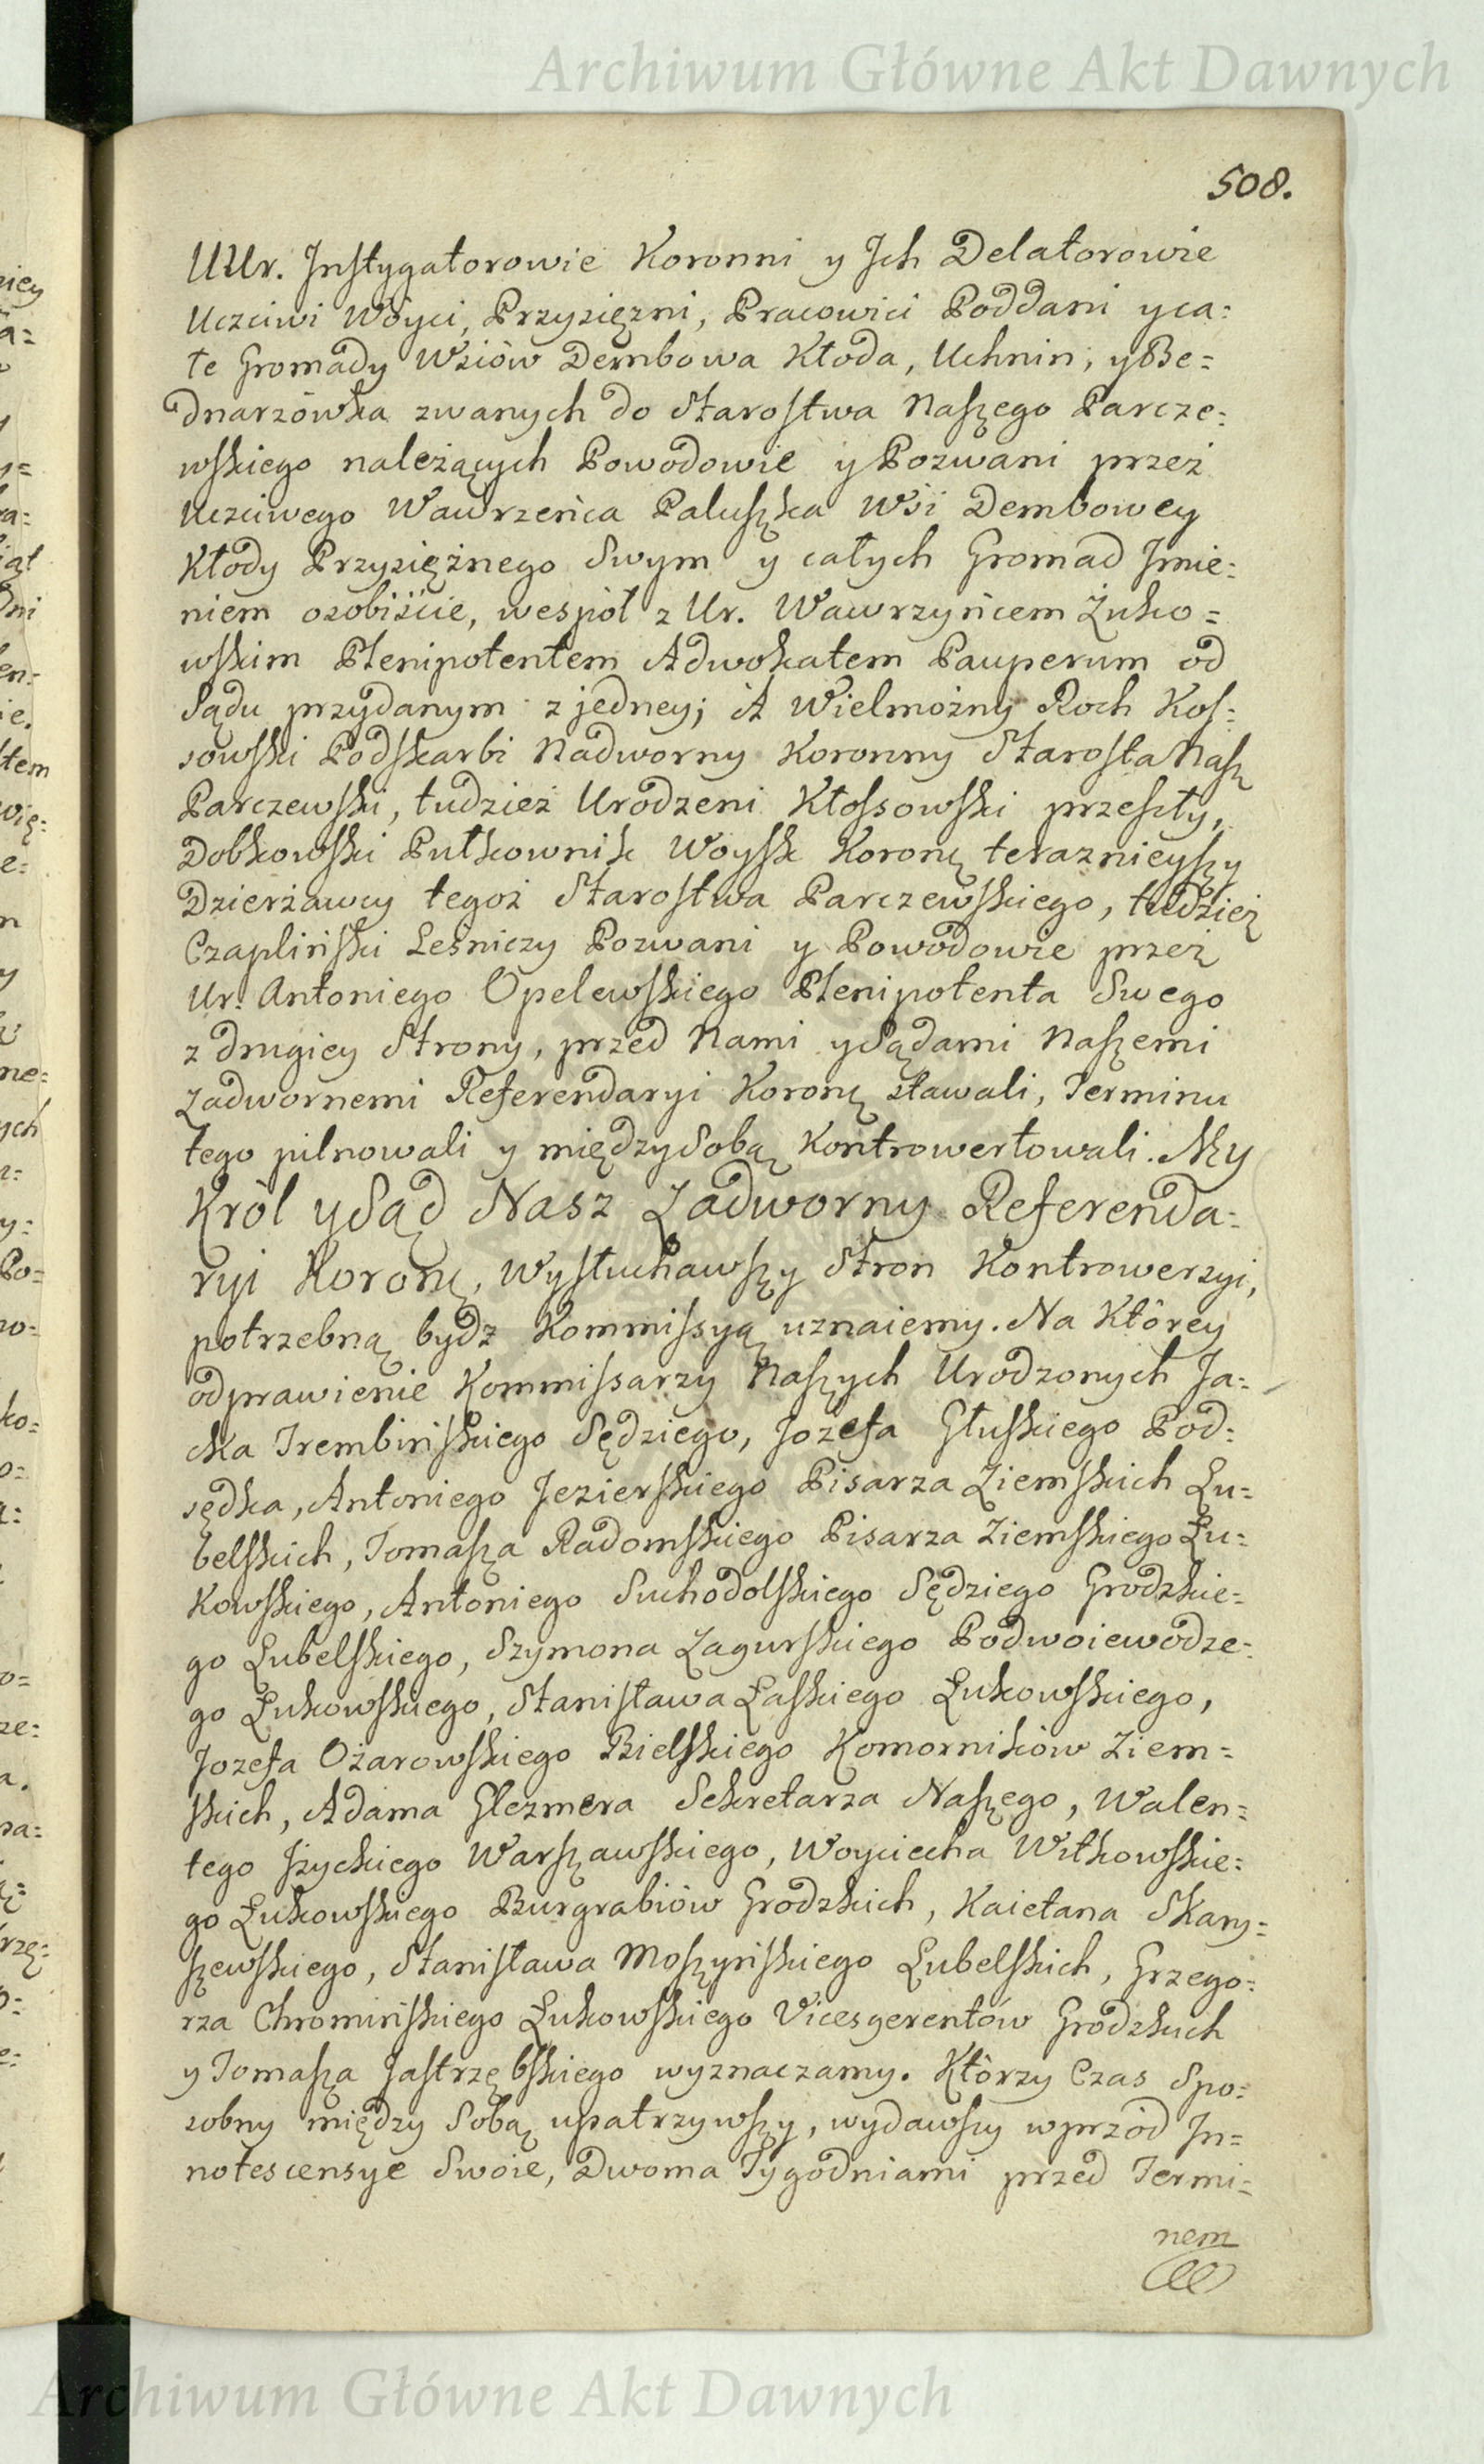 Archiwum Główne Akt Dawnych
508.
UUr. Instygatorowie Koronni y Jch Delatorowie
Uczciwi Wóyci, Przysięzni, Pracowici Poddani y ca=
łe Gromady Wsiów Dembowa Kłoda, Uchnin, y Be=
dnarzówka zwanych do Starostwa Naszego Parcze=
wskiego należących Powodowie y Pozwani przez
Uczciwego Wawrzeńca Paluszka Wsi Dembowey
Kłody Przysiężnego Swym y całych Gromad Jmie=
niem osobiście, wespół z Ur. Wawrzyńcem Żuko=
wskim Plenipotentem Adwokatem Pauperum od
Sądu przydanym z jedney; A Wielmożny Roch Kos=
sowski Podskarbi Nadworny Koronny Starosta Nasz
Parczewski, tudzież Urodzeni Kłossowski przeszły,
Dobkowski Pułkownik Woysk Koronn teraznieyszy
Dzierżawcy tegoż Starostwa Parczewskiego, tudzież
Czapliński Leśniczy Pozwani y Powodowie przez
Ur. Antoniego Opelewskiego Plenipotenta Swego
z drugiey Strony, przed Nami y Sądami Naszemi
Zadwornemi Referendaryi Koronn stawali, Terminu
tego pilnowali y między Sobą Kontrowertowali. My
Król y Sąd Nasz Zadworny Referenda=
ryi Koronn, Wysłuchawszy Stron Kontrowerzyi,
potrzebną bydz Kommissyą uznaiemy. Na Którey
odprawienie Kommissarzy Naszych Urodzonych Ja=
cka Trembińskiego Sędziego, Jozefa Głuskiego Pod=
sędka, Antoniego Jezierskiego Pisarza Ziemskich Lu=
belskich, Tomasza Radomskiego Pisarza Ziemskiego Łu=
kowskiego, Antoniego Suchodolskiego Sędziego Grodzkie=
go Lubelskiego, Szymona Zagurskiego Podwoiewodze=
go Łukowskiego, Stanisława Łaskiego Łukowskiego,
Jozefa Ożarowskiego Bielskiego Komorników Ziem=
skich, Adama Glezmera Sekretarza Naszego, Walen=
tego Szyckiego Warszawskiego, Woyciecha Witkowskie=
go Łukowskiego Burgrabiów Grodzkich, Kaietana Skary=
szewskiego, Stanisława Moszyńskiego Lubelskich, Grzego=
rza Chromińskiego Łukowskiego Vicesgerentów Grodzkich
y Tomasza Jastrzębskiego wyznaczamy. Którzy Czas Spo=
sobny między Sobą upatrzywszy, wydawszy wprzód Jn=
notescensye Swoie, Dwoma Tygodniami przed Termi=
nem
Archiwum Główne Akt Dawnych